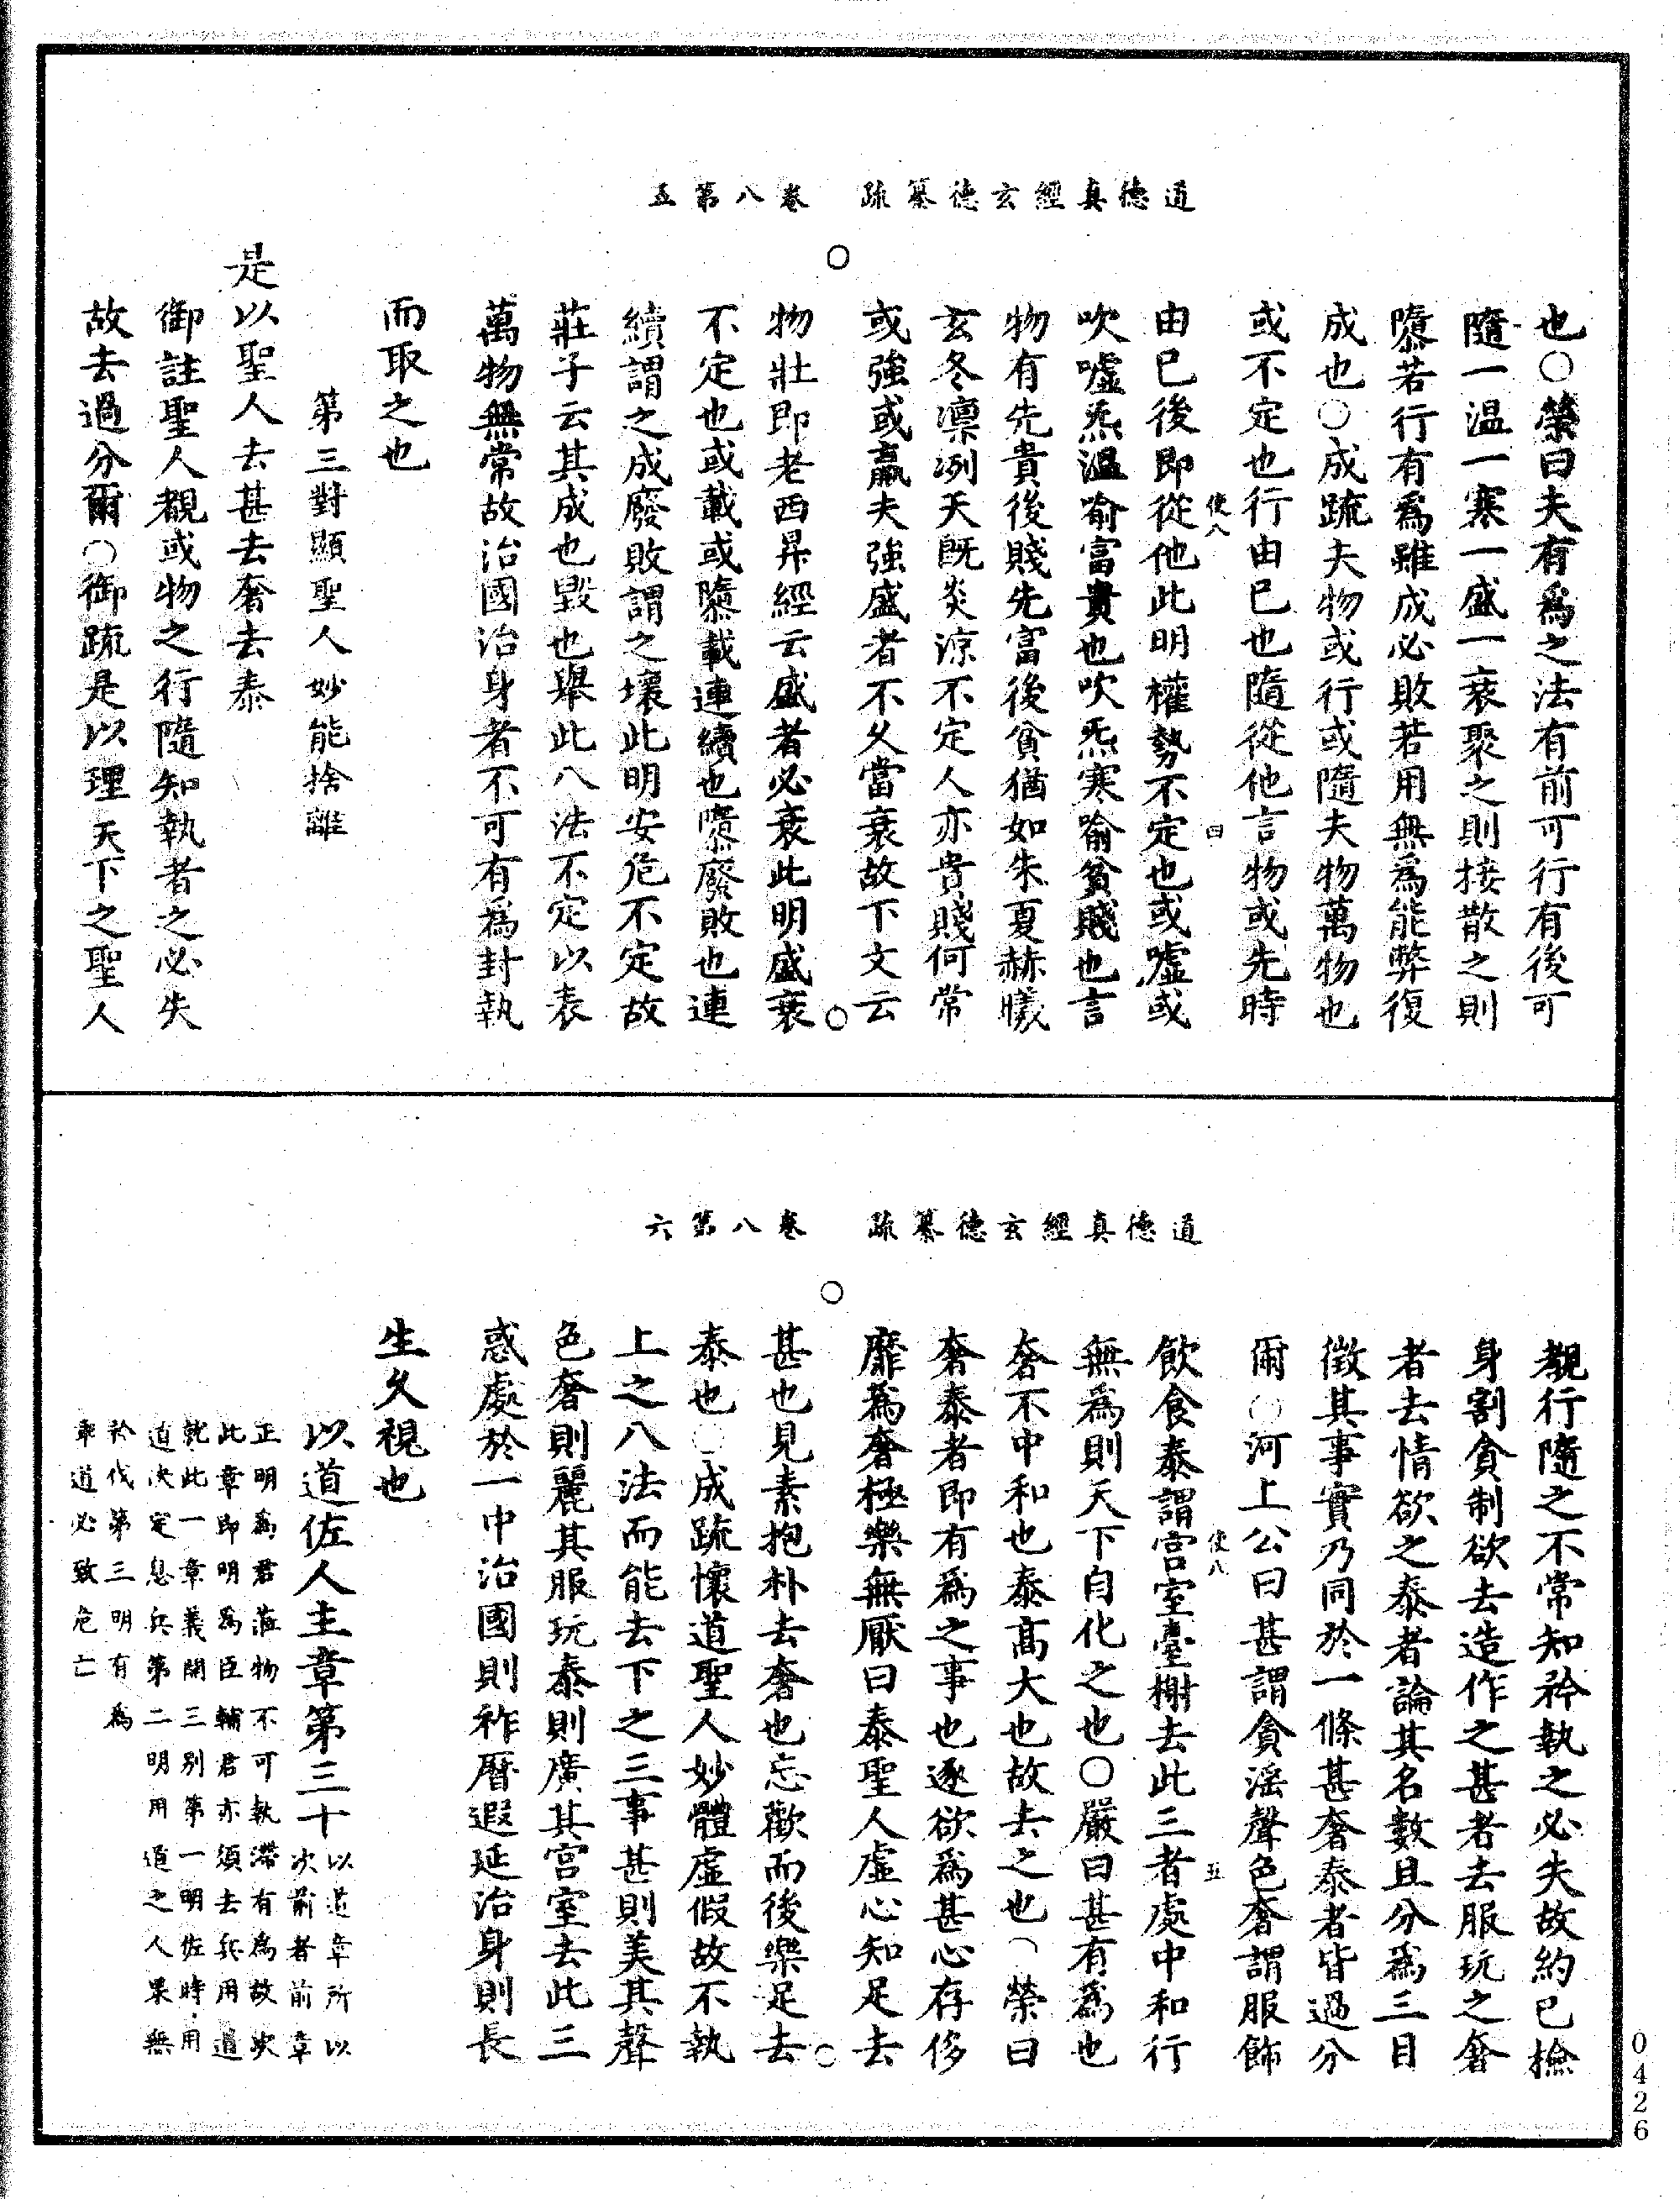 道德真經玄德纂疏　卷八第五
也○榮曰夫有為之法有前可行有後可
隨一溫一寒一盛一衰聚之則接散之則
隳若行有為雖成必敗若用無為能弊復
成也○成疏夫物或行或隨夫物萬物也
或不定也行由己也隨從他言物或先時
使八　四
由己後即從他此明權勢不定也或噓或
吹噓炁溫喻富貴也吹炁寒喻貧賤也言
物有先貴後賤先富後貧猶如朱夏赫曦
玄冬凜冽天既炎涼不定人亦貴賤何常
或強或羸夫強盛者不久當衰故下文云
物壯即老西昇經云盛者必衰此明盛衰
不定也或載或隳載連續也隳廢敗也連
續謂之成廢敗謂之壞此明安危不定故
莊子云其成也毀也舉此八法不定以表
萬物無常故治國治身者不可有為封執
而取之也
第三對顯聖人妙能捨離
是以聖人去甚去奢去泰
御註聖人覩或物之行隨知執者之必失
故去過分爾○御疏是以理天下之聖人
道德真經玄德纂疏　卷八第六
覩行隨之不常知矜執之必失故約己撿
身割貪制欲去造作之甚者去服玩之奢
者去情欲之泰者論其名數且分為三目
徵其事實乃同於一條甚奢泰者皆過分
爾○河上公曰甚謂貪淫聲色奢謂服飾
使八　五
飲食泰謂宮室臺榭去此三者處中和行
無為則天下自化之也○嚴曰甚有為也
奢不中和也泰高大也故去之也○榮曰
奢泰者即有為之事也逐欲為甚心存侈
靡為奢極樂無厭曰泰聖人虛心知足去
甚也見素抱朴去奢也忘歡而後樂足去
泰也○成疏懷道聖人妙體虛假故不執
上之八法而能去下之三事甚則美其聲
色奢則麗其服玩泰則廣其宮室去此三
惑處於一中治國則祚曆遐延治身則長
生久視也
以道佐人主章第三十
以道章所以
次前者前章
正明為君蒞物不可執滯有為故次
此章即明為臣輔君亦須去兵用道
就此一章義開三別第一明佐時用
道決定息兵第二明用道之人果無
矜伐第三明有為
乖道必致危亡
0426